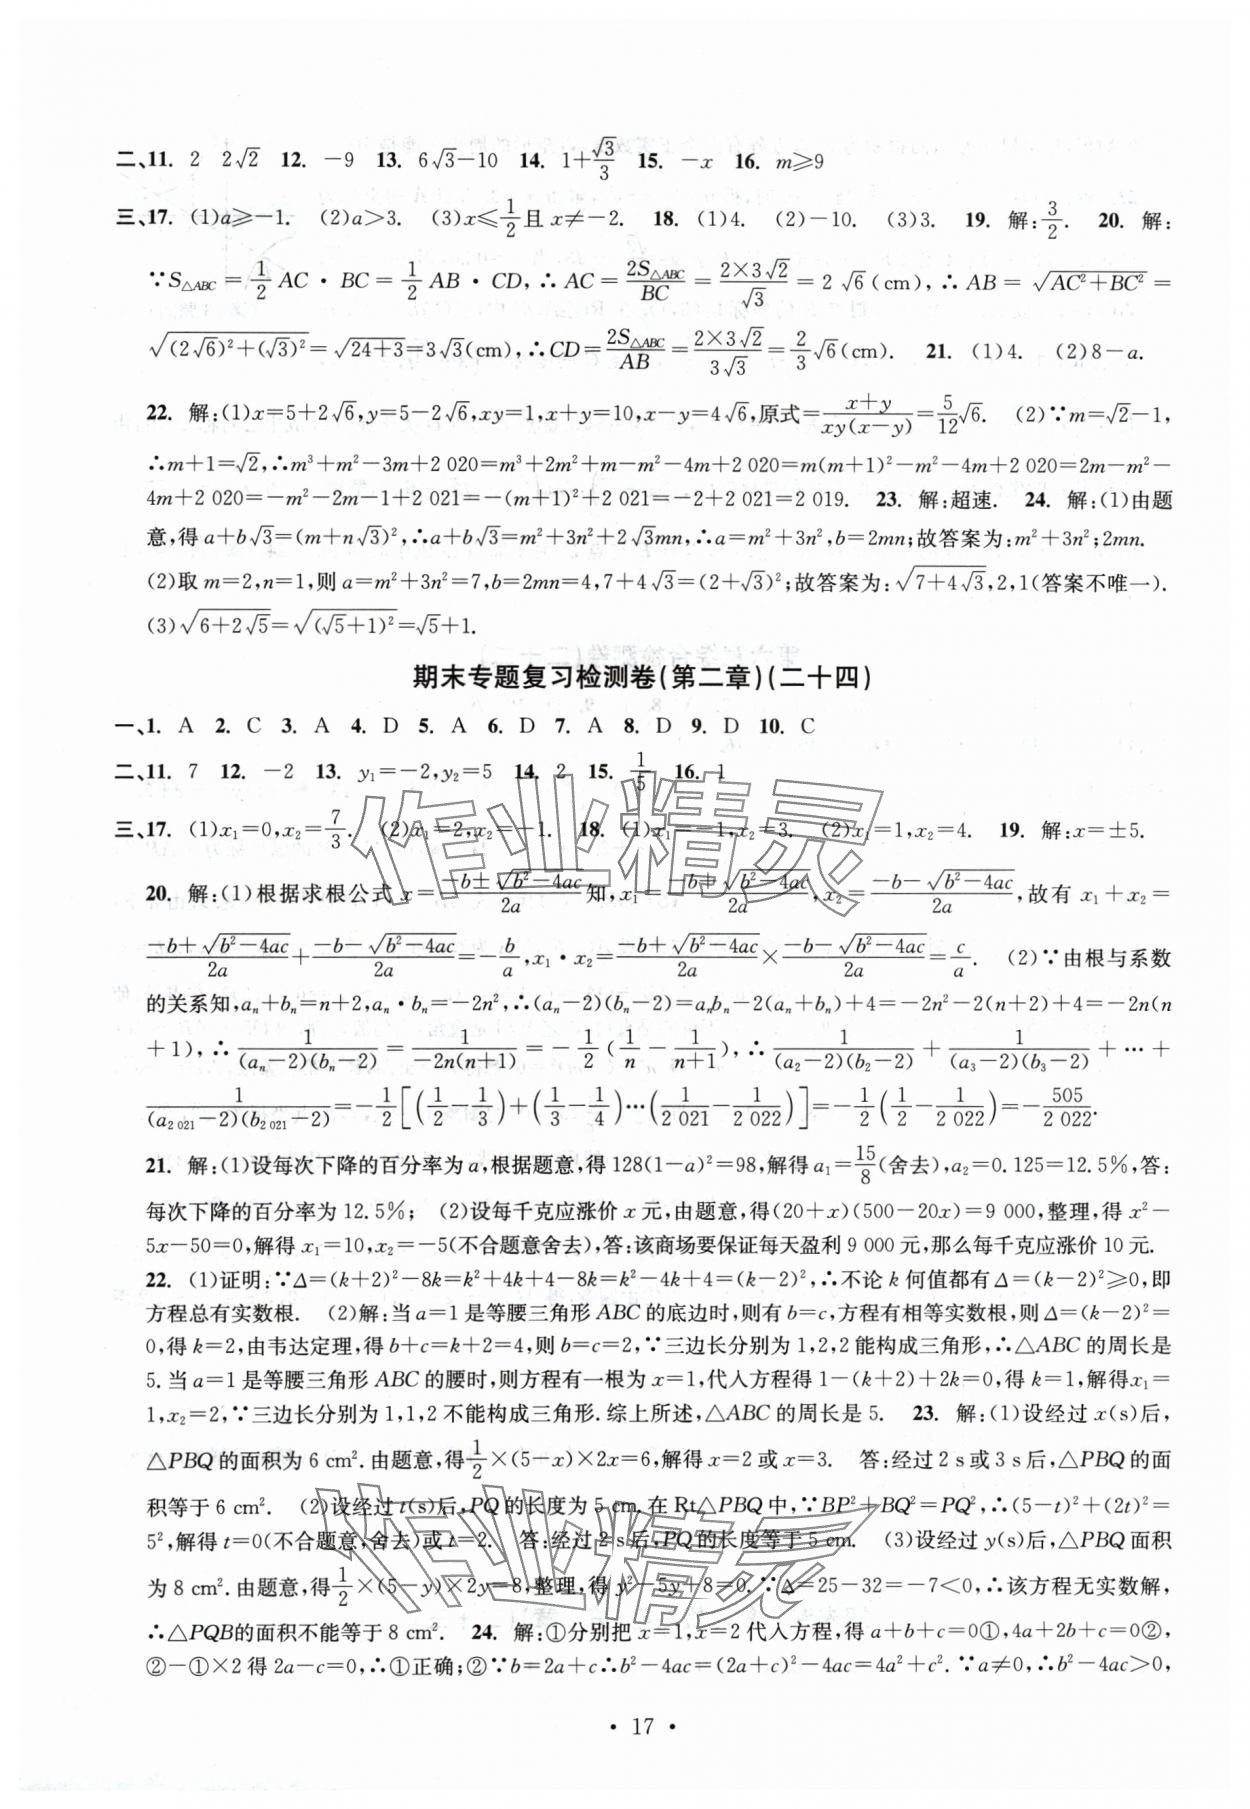 二、11. 2 2√2 12. －9 13. 6√3－10 14. 1＋√3/3 15. －x 16. m≥9
三、17. (1)a≥－1. (2)a＞3. (3)x≤1/2且 x≠－2. 18. (1)4. (2)－10. (3)3. 19. 解:3/2. 20. 解:
∵S△ABC＝1/2 AC·BC＝1/2 AB·CD,∴AC＝2S△ABC/BC＝2×3√2/√3＝2√6(cm),∴AB＝√(AC²＋BC²)＝
√((2√6)²＋(√3)²)＝√(24＋3)＝3√3(cm),∴CD＝2S△ABC/AB＝2×3√2/3√3＝2/3√6(cm). 21. (1)4. (2)8－a.
22. 解:(1)x＝5＋2√6,y＝5－2√6,xy＝1,x＋y＝10,x－y＝4√6,原式＝(x＋y)/(xy(x－y))＝5/12√6. (2)∵m＝√2－1,
∴m＋1＝√2,∴m³＋m²－3m＋2 020＝m³＋2m²＋m－m²－4m＋2 020＝m(m＋1)²－m²－4m＋2 020＝2m－m²－
4m＋2 020＝－m²－2m－1＋2 021＝－(m＋1)²＋2 021＝－2＋2 021＝2 019. 23. 解:超速. 24. 解:(1)由题
意,得 a＋b√3＝(m＋n√3)²,∴a＋b√3＝m²＋3n²＋2√3mn,∴a＝m²＋3n²,b＝2mn;故答案为:m²＋3n²;2mn.
(2)取 m＝2,n＝1,则 a＝m²＋3n²＝7,b＝2mn＝4,7＋4√3＝(2＋√3)²;故答案为:√(7＋4√3),2,1(答案不唯一).
(3)√(6＋2√5)＝√((√5＋1)²)＝√5＋1.
期末专题复习检测卷(第二章)(二十四)
一、1. A 2. C 3. A 4. D 5. A 6. D 7. A 8. D 9. D 10. C
二、11. 7 12. －2 13. y₁＝－2,y₂＝5 14. 2 15. 1/5 16. 1
三、17. (1)x₁＝0,x₂＝7/3. (2)x₁＝2,x₂＝－1. 18. (1)x₁＝－1,x₂＝3. (2)x₁＝1,x₂＝4. 19. 解:x＝±5.
20. 解:(1)根据求根公式 x＝(－b±√(b²－4ac))/2a 知,x₁＝(－b＋√(b²－4ac))/2a,x₂＝(－b－√(b²－4ac))/2a,故有 x₁＋x₂＝
(－b＋√(b²－4ac))/2a＋(－b－√(b²－4ac))/2a＝－b/a,x₁·x₂＝(－b＋√(b²－4ac))/2a×(－b－√(b²－4ac))/2a＝c/a. (2)∵由根与系数
的关系知,aₙ＋bₙ＝n＋2,aₙ·bₙ＝－2n²,∴(aₙ－2)(bₙ－2)＝aₙbₙ－2(aₙ＋bₙ)＋4＝－2n²－2(n＋2)＋4＝－2n(n
＋1),∴1/((aₙ－2)(bₙ－2))＝1/(－2n(n＋1))＝－1/2(1/n－1/(n＋1)),∴1/((a₂－2)(b₂－2))＋1/((a₃－2)(b₃－2))＋…＋
1/((a₂ ₀₂₁－2)(b₂ ₀₂₁－2))＝－1/2[(1/2－1/3)＋(1/3－1/4)…(1/2 021－1/2 022)]＝－1/2(1/2－1/2 022)＝－505/2 022.
21. 解:(1)设每次下降的百分率为 a,根据题意,得 128(1－a)²＝98,解得 a₁＝15/8(舍去),a₂＝0.125＝12.5%,答:
每次下降的百分率为 12.5%; (2)设每千克应涨价 x 元,由题意,得(20＋x)(500－20x)＝9 000,整理,得 x²－
5x－50＝0,解得 x₁＝10,x₂＝－5(不合题意舍去),答:该商场要保证每天盈利 9 000 元,那么每千克应涨价 10 元.
22. (1)证明:∵Δ＝(k＋2)²－8k＝k²＋4k＋4－8k＝k²－4k＋4＝(k－2)²,∴不论 k 何值都有 Δ＝(k－2)²≥0,即
方程总有实数根. (2)解:当 a＝1 是等腰三角形 ABC 的底边时,则有 b＝c,方程有相等实数根,则 Δ＝(k－2)²＝
0,得 k＝2,由韦达定理,得 b＋c＝k＋2＝4,则 b＝c＝2,∵三边长分别为 1,2,2 能构成三角形,∴△ABC 的周长是
5.当 a＝1 是等腰三角形 ABC 的腰时,则方程有一根为 x＝1,代入方程得 1－(k＋2)＋2k＝0,得 k＝1,解得x₁＝
1,x₂＝2,∵三边长分别为 1,1,2 不能构成三角形.综上所述,△ABC 的周长是 5. 23. 解:(1)设经过 x(s)后,
△PBQ 的面积为 6 cm².由题意,得1/2×(5－x)×2x＝6,解得 x＝2 或 x＝3. 答:经过 2 s 或 3 s 后,△PBQ 的面
积等于 6 cm². (2)设经过 t(s)后,PQ 的长度为 5 cm.在 Rt△PBQ 中,∵BP²＋BQ²＝PQ²,∴(5－t)²＋(2t)²＝
5²,解得 t＝0(不合题意,舍去)或 t＝2. 答:经过 2 s 后,PQ 的长度等于 5 cm. (3)设经过 y(s)后,△PBQ 面积
为 8 cm².由题意,得1/2×(5－y)×2y＝8,整理,得 y²－5y＋8＝0.∵Δ＝25－32＝－7＜0,∴该方程无实数解,
∴△PQB的面积不能等于 8 cm². 24. 解:①分别把 x＝1,x＝2 代入方程,得 a＋b＋c＝0①,4a＋2b＋c＝0②,
②－①×2 得 2a－c＝0,∴①正确;②∵b＝2a＋c∴b²－4ac＝(2a＋c)²－4ac＝4a²＋c².∵a≠0,∴b²－4ac＞0,
·17·
作业精灵
作业精灵